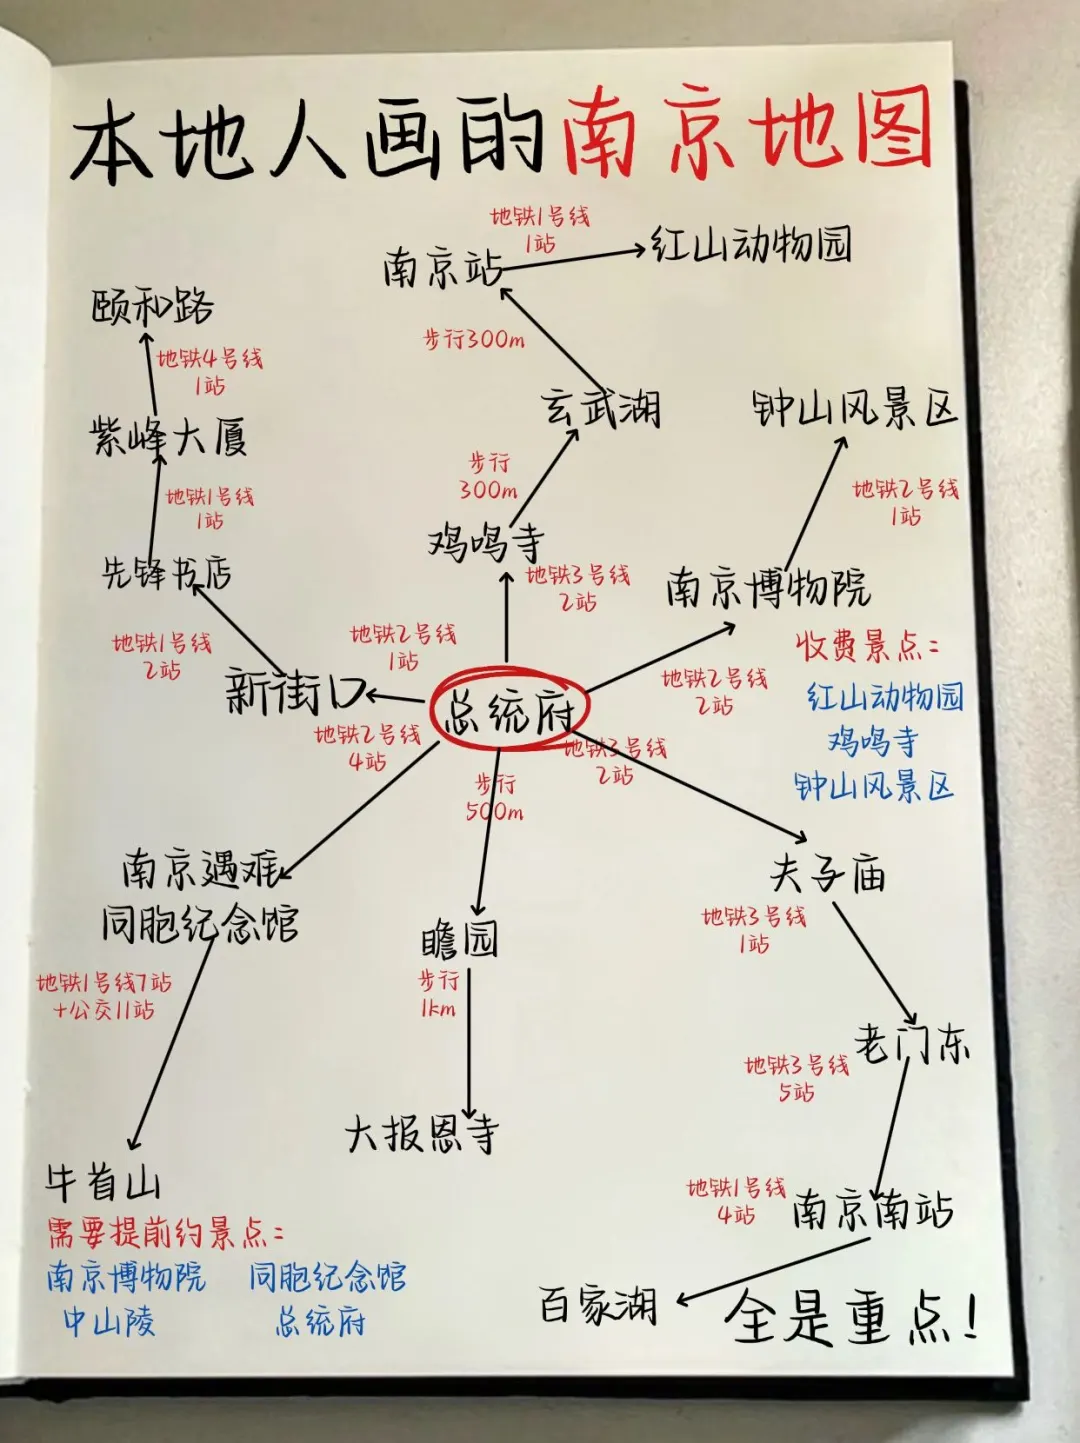 本地人画的南京地图
地铁1号线
1站
南京站
红山动物园
颐和路
步行300m
地铁4号线
1站
玄武湖
钟山风景区
紫峰大厦
步行
300m
地铁2号线
1站
地铁1号线
1站
鸡鸣寺
先锋书店
地铁3号线
2站
南京博物院
地铁1号线
2站
地铁2号线
1站
收费景点:
新街口
总统府
地铁2号线
2站
红山动物园
鸡鸣寺
钟山风景区
地铁2号线
4站
地铁3号线
2站
步行
500m
南京遇难
同胞纪念馆
夫子庙
瞻园
地铁3号线
1站
地铁1号线7站
+公交11站
步行
1km
老门东
地铁3号线
5站
大报恩寺
牛首山
地铁1号线
4站
南京南站
需要提前约景点:
南京博物院 同胞纪念馆
中山陵 总统府
百家湖
全是重点!